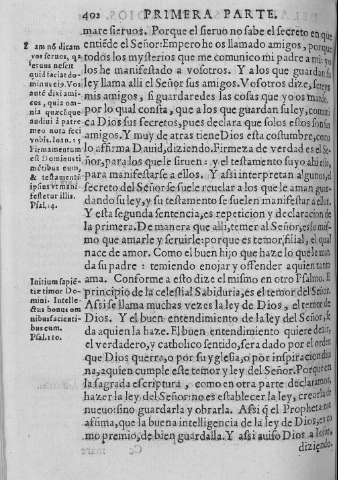 402 PRIMERA PARTE.
mare sieruos. Porque el sieruo no sabe el secreto en que
entiēde el Señor: Empero he os llamado amigos, porque
todos los mysterios que me comunico mi padre a mi yo
los he manifestado a vosotros. Y a los que guardan su
ley llama alli el Señor sus amigos. Vosotros dize, sereys
mis amigos, si guardaredes las cosas que yo os mando.
por lo qual consta, que a los que guardan su ley, comuni
ca Dios sus secretos, pues declara que solos essos son sus
amigos. Y muy de atras tiene Dios esta costumbre, como
lo affirma Dauid, diziendo. Firmeza de verdad es el Se-
ñor, para los que le siruen: y el testamento suyo ahi esta
para manifestarse a ellos. Y assi interpretan algunos, el
secreto del Señor se suele reuelar a los que le aman guar
dando su ley, y su testamento se suelen manifestar a ellos.
Y esta segunda sentencia, es repeticion y declaracion de
la primera. De manera que alli, temer al Señor, es lo mis-
mo que amarle y seruirle: porque es temor, filial, el qual
nace de amor. Como el buen hijo que haze lo que le man
da su padre: temiendo enojar y offender a quien tanto
ama. Conforme a esto dize el mismo en otro Psalmo. El
principio de la celestial Sabiduria, es el temor del Señor.
Assi se llama muchas vezes la ley de Dios, el temor de
Dios. Y el buen entendimiento de la ley del Señor, se
da a quien la haze. El buen entendimiento quiere dezir,
el verdadero, y catholico sentido, sera dado por el orden
que Dios querra, o por su yglesia, o por inspiracion diui
na, a quien cumple este temor y ley del Señor. Porque en
la sagrada escriptura, como en otra parte declaramos,
hazer la ley del Señor: no es establecer la ley, crearla de
nueuo: sino guardarla y obrarla. Assi q̃ el Propheta nos
affirma, que la buena intelligencia de la ley de Dios, es co
mo premio, de bien guardalla. Y assi auiso Dios a Iosue,
diziendo
Iam nō dicam
vos seruos, qa
seruus nescit
quid faciat do-
minus eius. Vos
autē dixi ami-
cos, quia om-
nia quæcũque
audiui à patre
meo nota feci
vobis. Ioan. 15
Firmamentum
est Dominus ti
mētibus eum,
& testamentũ
ipsius vt mani-
festetur illis.
Psal. 24.
Initium sapiē-
tiæ timor Do-
mini. Intelle-
ctus bonus om
nibus facienti-
bus eum.
Psal. 110.